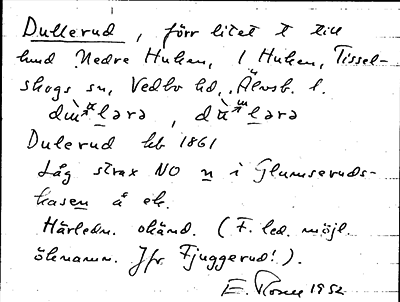 Dullerud, förr litet t till
hmd Nedre Huken, 1 Huken, Tissel-
skogs sn, Vedbo hd, Älvsb. l.
Dulerud kb 1861
Låg strax NO n i Glumseruds-
kasen å ek.
Härledn. okänd. (F. led. möjl.
öknamn. Jfr Fjuggerud!).
E. Rosen 1952